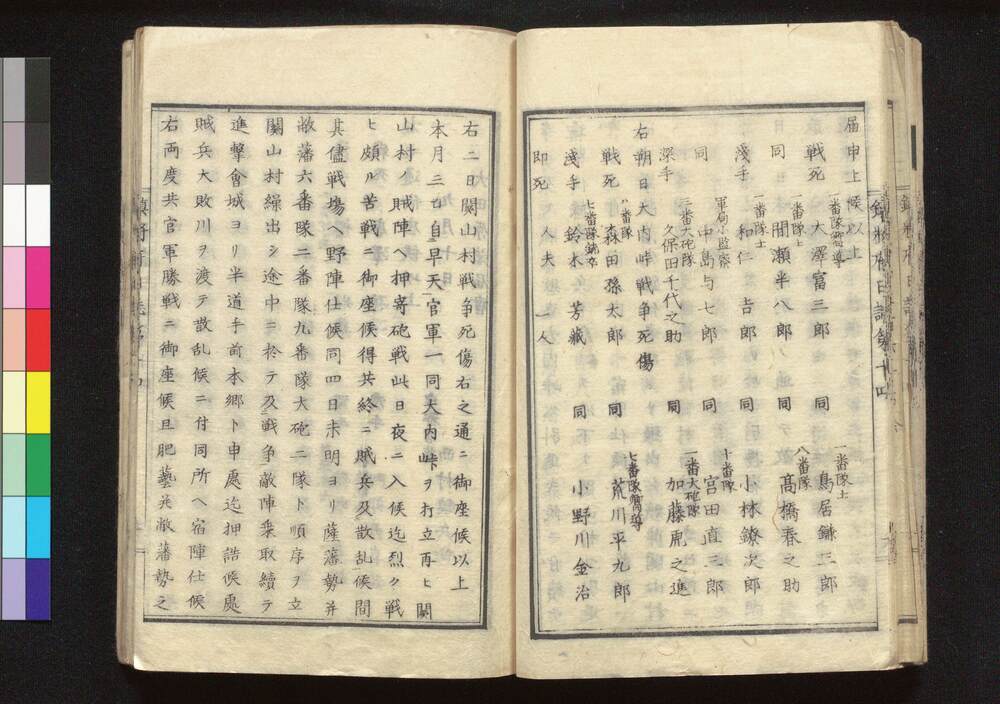 届申上候以上
一番隊嚮導
戦死 大澤富三郎 同
一番隊士
鳥居鎌三郎
一番隊士
同 間瀬半八郎 同
八番隊
髙橋春之助
一番隊士
淺手 和仁 吉郎 同 小林鐐次郎
軍局小監察
同 中島与七郎 同
十番隊
宮田直三郎
三番大砲隊
深手 久保田千代之助 同
一番大砲隊
加藤鹿之進
右朔日大内峠戦争死傷
八番隊
戦死 森田孫太郎 同 荒川平九郎
七番隊銃卒
淺手 鈴木芳蔵 同
七番隊嚮導
小野川金治
即死 人夫 一人
右二日関山村戦争死傷右之通ニ御座候以上
本月三日自早天官軍一同大内峠ヲ打立再ヒ関
山村ノ賊陣ヘ押寄砲戦此日夜ニ入候迄烈ク戦
ヒ頗ル苦戦ニ御座候得共終ニ賊兵及散乱候間
其儘戦塲ヘ野陣仕候同四日未明ヨリ薩藩勢并
敝藩六番隊二番隊九番隊大砲二隊ト順序ヲ立
關山村繰出シ途中ニ於テ及戦争敵陣乗取續テ
進撃會城ヨリ半道手前本郷ト申處迄押詰候處
賊兵大敗川ヲ渡テ散乱候ニ付同所ヘ宿陣仕候
右両度共官軍勝戦ニ御座候且肥藝并敝藩勢之